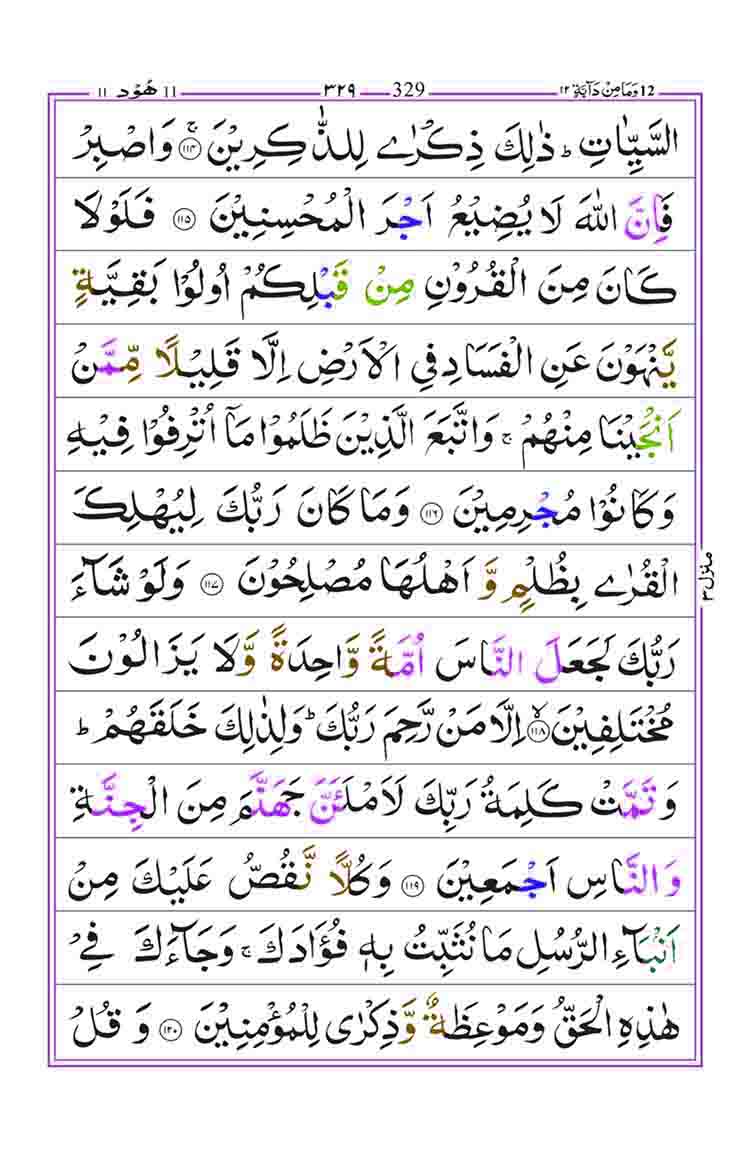 12 وَمَا مِنْ دَآبَّةٍ ١٢ 329 ٣٢٩ 11 هُوْد ١١
السَّيِّاٰتِ ؕ ذٰلِكَ ذِكْرٰى لِلذّٰكِرِيْنَ ۚ ﴿۱۱۴﴾ وَاصْبِرْ
فَاِنَّ اللّٰهَ لَا يُضِيْعُ اَجْرَ الْمُحْسِنِيْنَ ﴿۱۱۵﴾ فَلَوْلَا
كَانَ مِنَ الْقُرُوْنِ مِنْ قَبْلِكُمْ اُولُوْا بَقِيَّةٍ
يَّنْهَوْنَ عَنِ الْفَسَادِ فِي الْاَرْضِ اِلَّا قَلِيْلًا مِّمَّنْ
اَنْجَيْنَا مِنْهُمْ ۚ وَاتَّبَعَ الَّذِيْنَ ظَلَمُوْا مَاۤ اُتْرِفُوْا فِيْهِ
وَكَانُوْا مُجْرِمِيْنَ ﴿۱۱۶﴾ وَمَا كَانَ رَبُّكَ لِيُهْلِكَ
الْقُرٰى بِظُلْمٍ وَّ اَهْلُهَا مُصْلِحُوْنَ ﴿۱۱۷﴾ وَلَوْ شَآءَ
رَبُّكَ لَجَعَلَ النَّاسَ اُمَّةً وَّاحِدَةً وَّلَا يَزَالُوْنَ
مُخْتَلِفِيْنَ ۙ ﴿۱۱۸﴾ اِلَّا مَنْ رَّحِمَ رَبُّكَ ؕ وَلِذٰلِكَ خَلَقَهُمْ ؕ
وَتَمَّتْ كَلِمَةُ رَبِّكَ لَاَمْلَـَٔنَّ جَهَنَّمَ مِنَ الْجِنَّةِ
وَالنَّاسِ اَجْمَعِيْنَ ﴿۱۱۹﴾ وَكُلًّا نَّقُصُّ عَلَيْكَ مِنْ
اَنْۢبَآءِ الرُّسُلِ مَا نُثَبِّتُ بِهٖ فُؤَادَكَ ۚ وَجَآءَكَ فِيْ
هٰذِهِ الْحَقُّ وَمَوْعِظَةٌ وَّذِكْرٰى لِلْمُؤْمِنِيْنَ ﴿۱۲۰﴾ وَقُلْ
منزل ٣